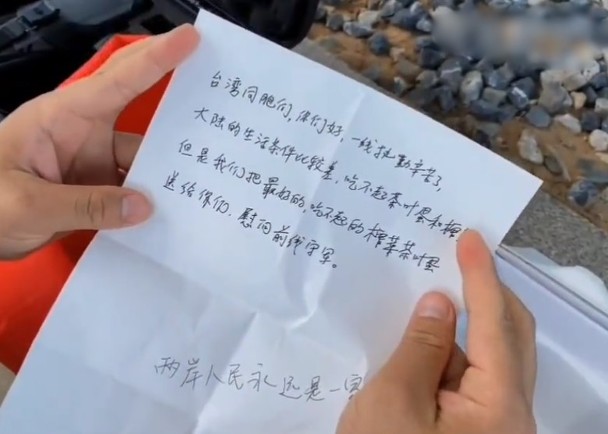 台湾同胞们，你们好，一线执勤辛苦了，
大陆的生活条件比较差，吃不起茶叶蛋和榨
但是我们把最好的，吃不起的榨菜茶叶蛋
送给你们，慰问前线守军。
两岸人民永还是一